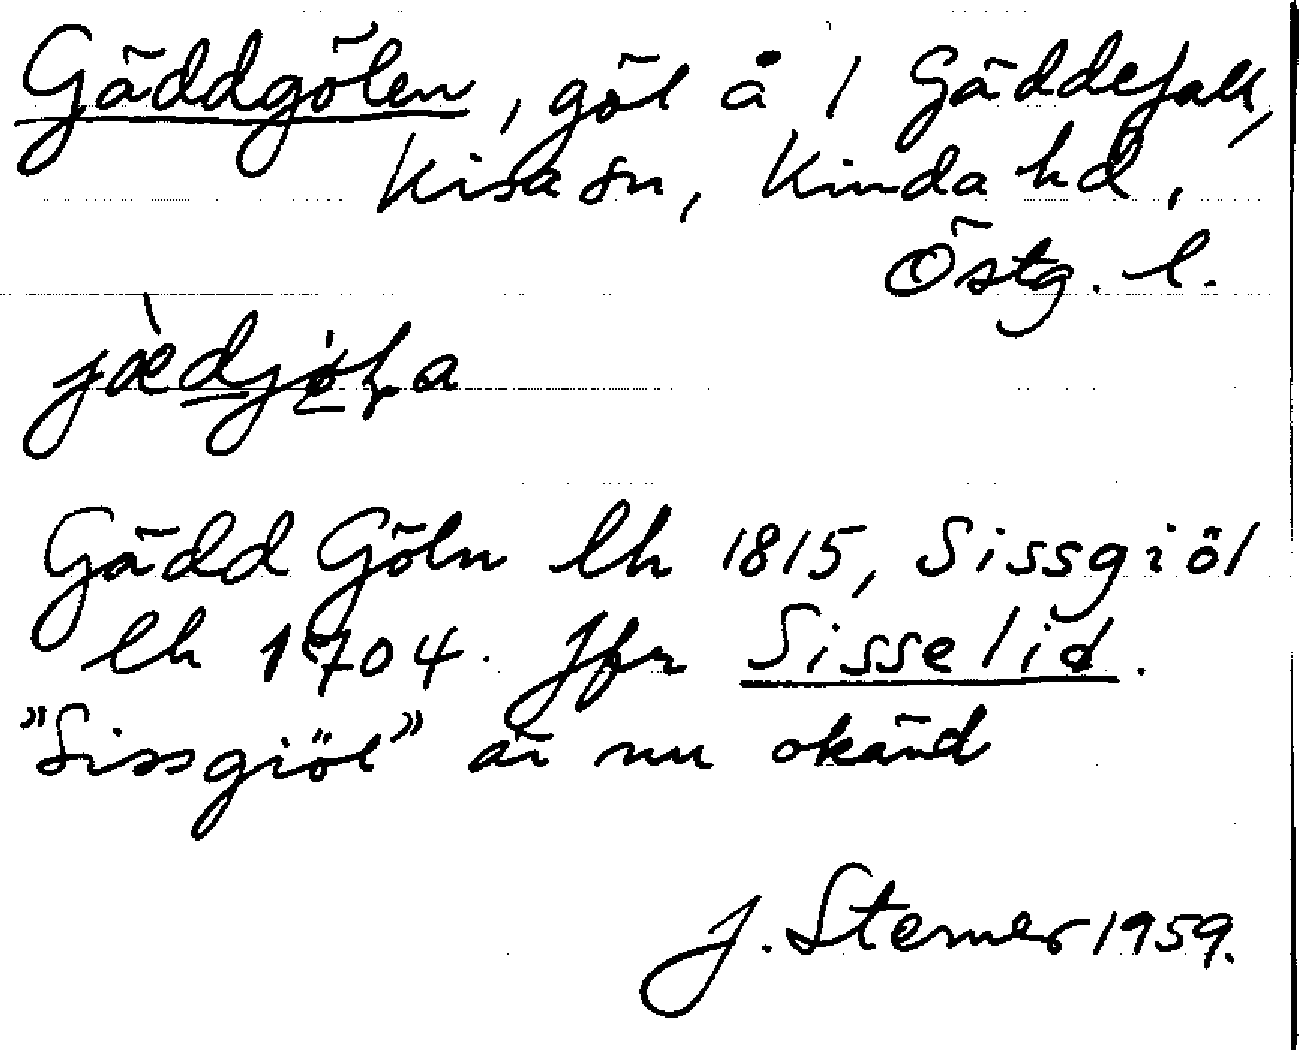 Gäddgölen, göl å 1 Gäddefall,
Kisa sn, Kinda hd,
Östg. l.
jædjöla
Gädd Göln lh 1815, Sissgiöl
lh 1704. Jfr Sisselid.
"Sissgiöl" är nu okänd
J. Sterner 1959.